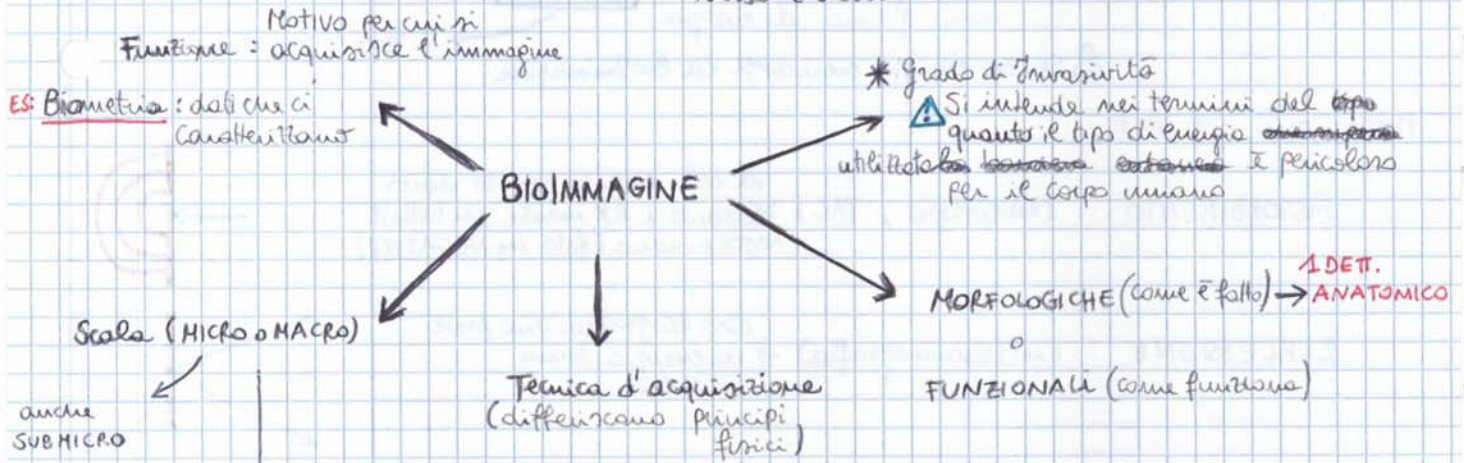 Motivo per cui si
Funzione : acquisisce l'immagine
ES: Biometria : dati che ci
caratterizzano
* Grado di Invasività
Si intende nei termini del tipo
quanto il tipo di energia
utilizzata è pericoloso
per il corpo umano
BIOIMMAGINE
MORFOLOGICHE (come è fatto) → 1 DETT.
ANATOMICO
o
FUNZIONALI (come funziona)
Scala (MICRO o MACRO)
anche
SUBMICRO
Tecnica d'acquisizione
(differiscono principi
fisici)